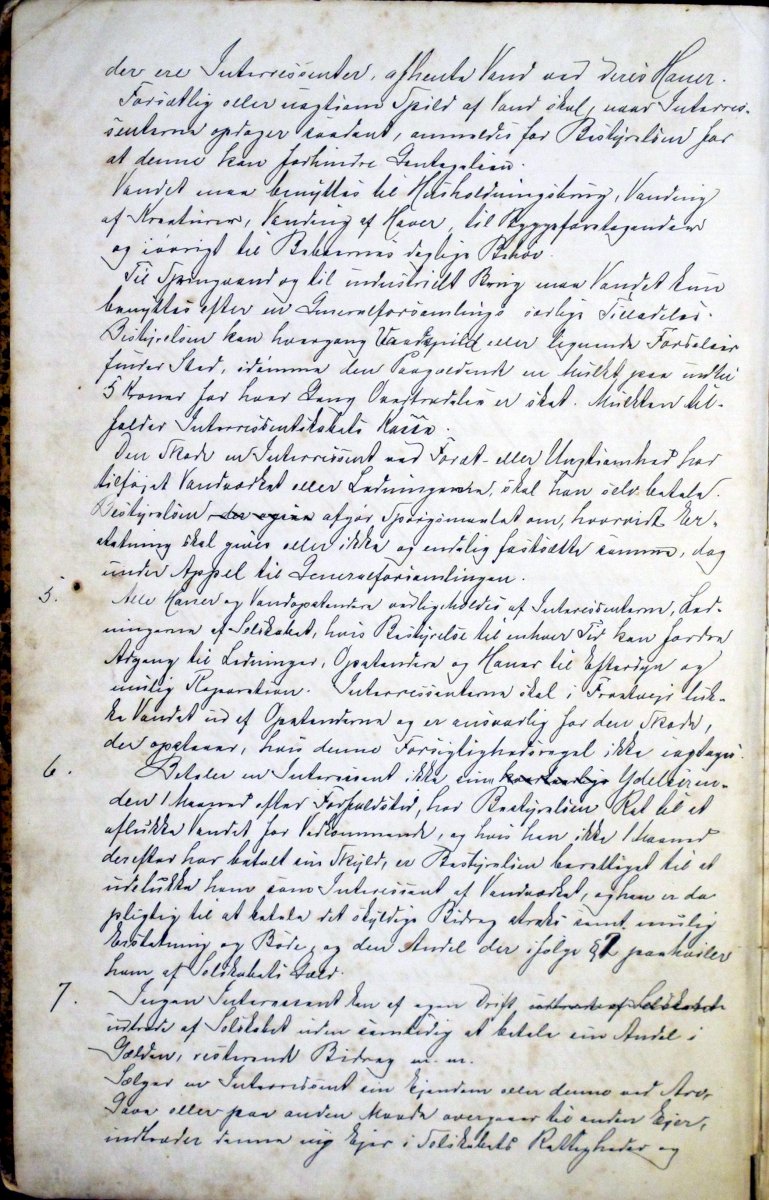 der ere Interressenter, afhente Vand ved deres Haner.
Forsætlig eller uagtsom Spild af Vand skal, naar Interres-
senterne opdager saadant, anmeldes for Bestyrelsen for
at denne kan forhindre Gentagelsen.
Vandet maa benyttes til Husholdningsbrug, Vanding
af Kreaturer, Vanding af Haver, til Byggeforetagender
og iøvrigt til Beboernes daglige Behov.
Til Springvand og til industrielt Brug maa Vandet kun
benyttes efter en Generalforsamlings særlige Tilladelse.
Bestyrelsen kan hvergang Vandspild eller lignende Forseelser
finder Sted, idømme den Paagældende en Mulkt paa indtil
5 Kroner for hver Gang Overtrædelsen er sket. Mulkten til-
falder Interressentskabets Kasse.
Den Skade en Interressent ved Forsæt- eller Uagtsomhed har
tilføjet Vandværket eller Ledningerne, skal han selv betale.
Bestyrelsen afgør Spørgsmaalet om, hvorvidt Er-
statning skal gives eller ikke og endelig fastsætte samme, dog
under Appel til Generalforsamlingen.
5. Alle Haner og Vandopstandere vedligeholdes af Interessenterne, Led-
ningerne af Selskabet, hvis Bestyrelse til enhver Tid kan fordre
Adgang til Ledninger, Opstandere og Haner til Eftersyn og
mulig Reparation. Interressenterne skal i Frostvejr luk-
ke Vandet ud af Opstanderne og er ansvarlig for den Skade,
der opstaaer, hvis denne Forsigtighedsregel ikke iagtages.
6. Betaler en Interessent ikke sine Ydelser in-
den 1 Maaned efter Forfaldstid, har Bestyrelsen Ret til at
aflukke Vandet for Vedkommende, og hvis han ikke 1 Maaned
derefter har betalt sin Skyld, er Bestyrelsen berettiget til at
udelukke ham som Interessent af Vandværket, og han er da
pligtig til at betale det skyldige Bidrag straks samt mulig
Erstatning og Bøde, og den Andel der ifølge § paahviler
ham af Selskabets Gæld.
7. Ingen Interessent kan af egen Drift udtræde af Selskabet
udtræde af Selskabet uden samtidig at betale sin Andel i
Gælden, resterende Bidrag m. m.
Sælger en Interressent sin Ejendom eller denne ved Arv,
Gave eller paa anden Maade overgaaer til anden Ejer,
indtræder denne ny Ejer i Selskabets Rettigheder og